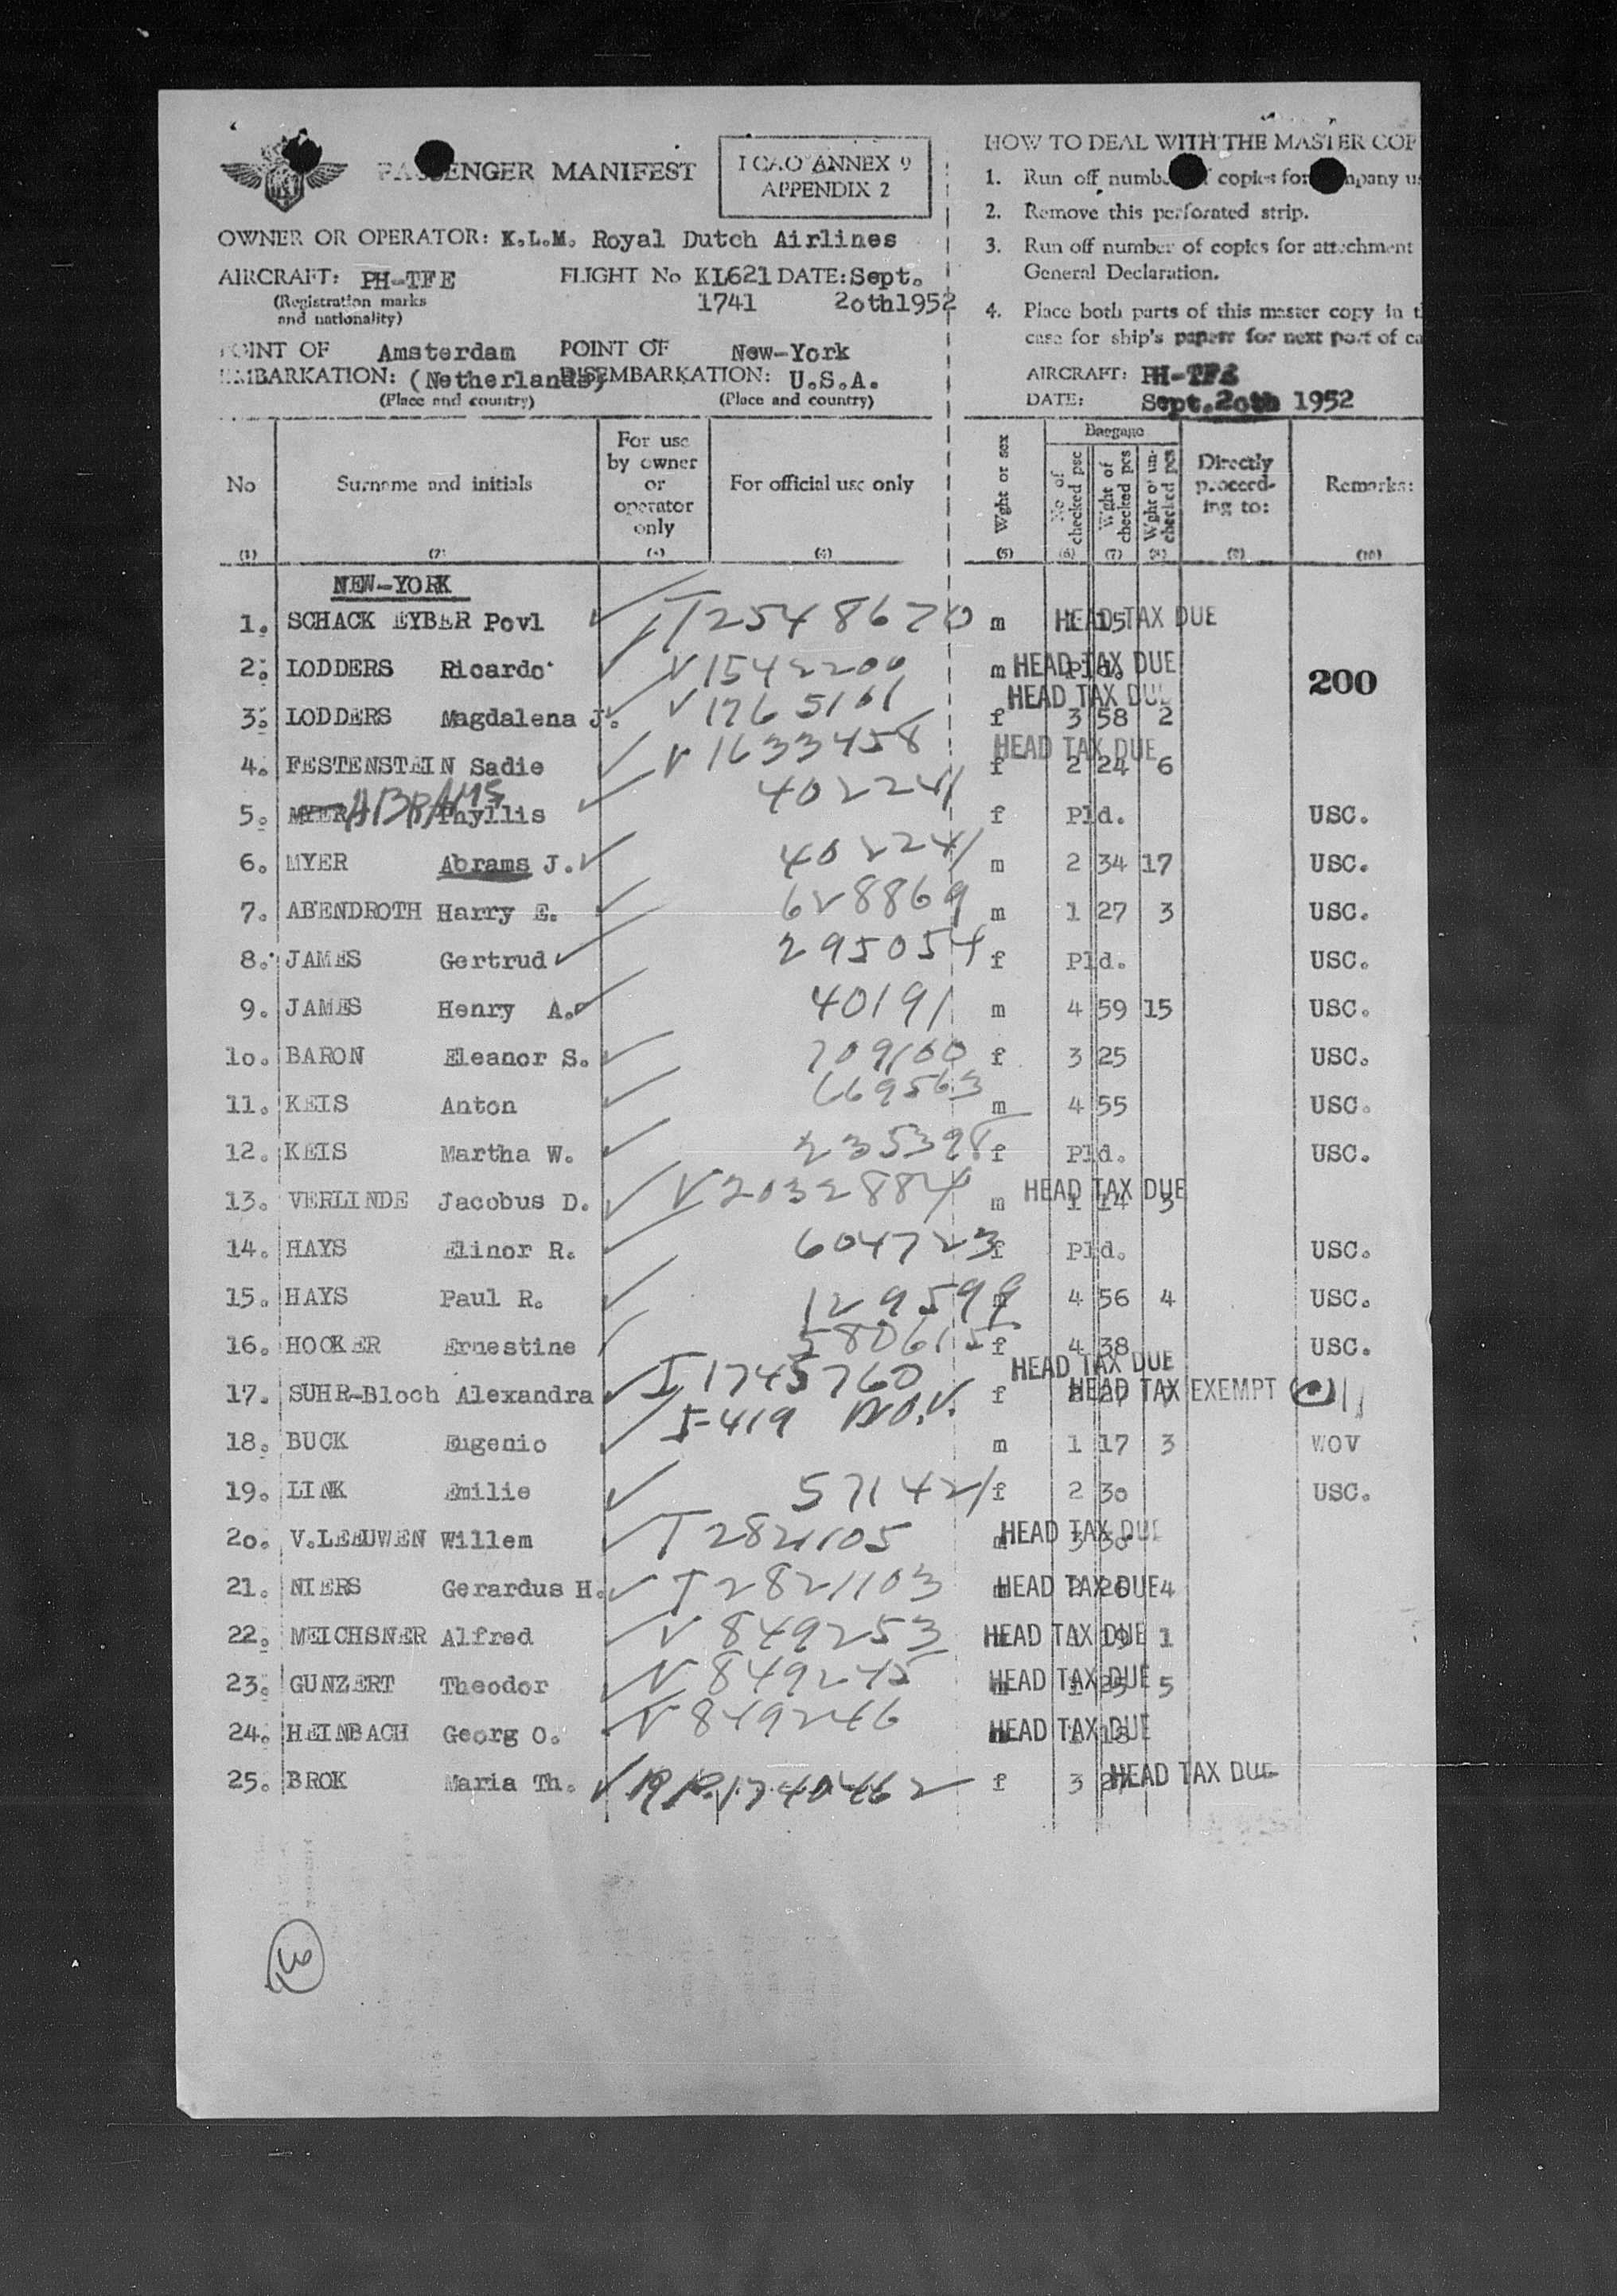 PASSENGER MANIFEST
I CAO ANNEX 9
APPENDIX 2
OWNER OR OPERATOR: K.L.M. Royal Dutch Airlines
AIRCRAFT: PH-TFE FLIGHT No KL621 DATE: Sept.
(Registration marks 1741 2oth1952
and nationality)
POINT OF Amsterdam POINT OF New-York
EMBARKATION: (Netherlands) DISEMBARKATION: U.S.A.
(Place and country) (Place and country)
HOW TO DEAL WITH THE MASTER COP
1. Run off numb copies for mpany u
2. Remove this perforated strip.
3. Run off number of copies for attachment
General Declaration.
4. Place both parts of this master copy in t
case for ship's papers for next part of ca
AIRCRAFT: PH-TFE
DATE: Sept.2oth 1952
No Surname and initials For use by owner or operator only For official use only Wght or sex Baggage No of checked psc Wght of checked pcs Wght of un-checked pcs Directly proceed-ing to: Remarks:
(1) (2) (3) (4) (5) (6) (7) (8) (9) (10)
NEW-YORK
1. SCHACK EYBER Povl T2548670 m 1 15 HEAD TAX DUE
2. LODDERS Ricardo V1542200 m Pld. HEAD TAX DUE
200
3. LODDERS Magdalena J. V1765101 f 3 58 2 HEAD TAX DUE
4. FESTENSTEIN Sadie V1633458 f 2 24 6 HEAD TAX DUE
5. MYER ABRAMS Phyllis 402241 f Pld. USC.
6. MYER Abrams J. 402241 m 2 34 17 USC.
7. ABENDROTH Harry E. 628869 m 1 27 3 USC.
8. JAMES Gertrud 295054 f Pld. USC.
9. JAMES Henry A. 40191 m 4 59 15 USC.
1o. BARON Eleanor S. 709100 f 3 25 USC.
11. KEIS Anton 669563 m 4 55 USC.
12. KEIS Martha W. 235398 f Pld. USC.
13. VERLINDE Jacobus D. V2032884 m 1 14 3 HEAD TAX DUE
14. HAYS Elinor R. 604723 f Pld. USC.
15. HAYS Paul R. 129599 m 4 56 4 USC.
16. HOOKER Ernestine 580615 f 4 38 USC.
17. SUHR-Bloch Alexandra I1745760 f HEAD TAX DUE HEAD TAX EXEMPT
5-419 WOV.
18. BUCK Eugenio m 1 17 3 WOV
19. LINK Emilie 571421 f 2 3o USC.
2o. V.LEEUWEN Willem T2821105 m 3 3o HEAD TAX DUE
21. NIERS Gerardus H. T2821103 m 2 26 4 HEAD TAX DUE
22. MEICHSNER Alfred V849253 1 19 1 HEAD TAX DUE
23. GUNZERT Theodor V849245 m 1 25 5 HEAD TAX DUE
24. HEINBACH Georg O. V849246 HEAD TAX DUE
25. BROK Maria Th. RP.1740462 f 3 HEAD TAX DUE